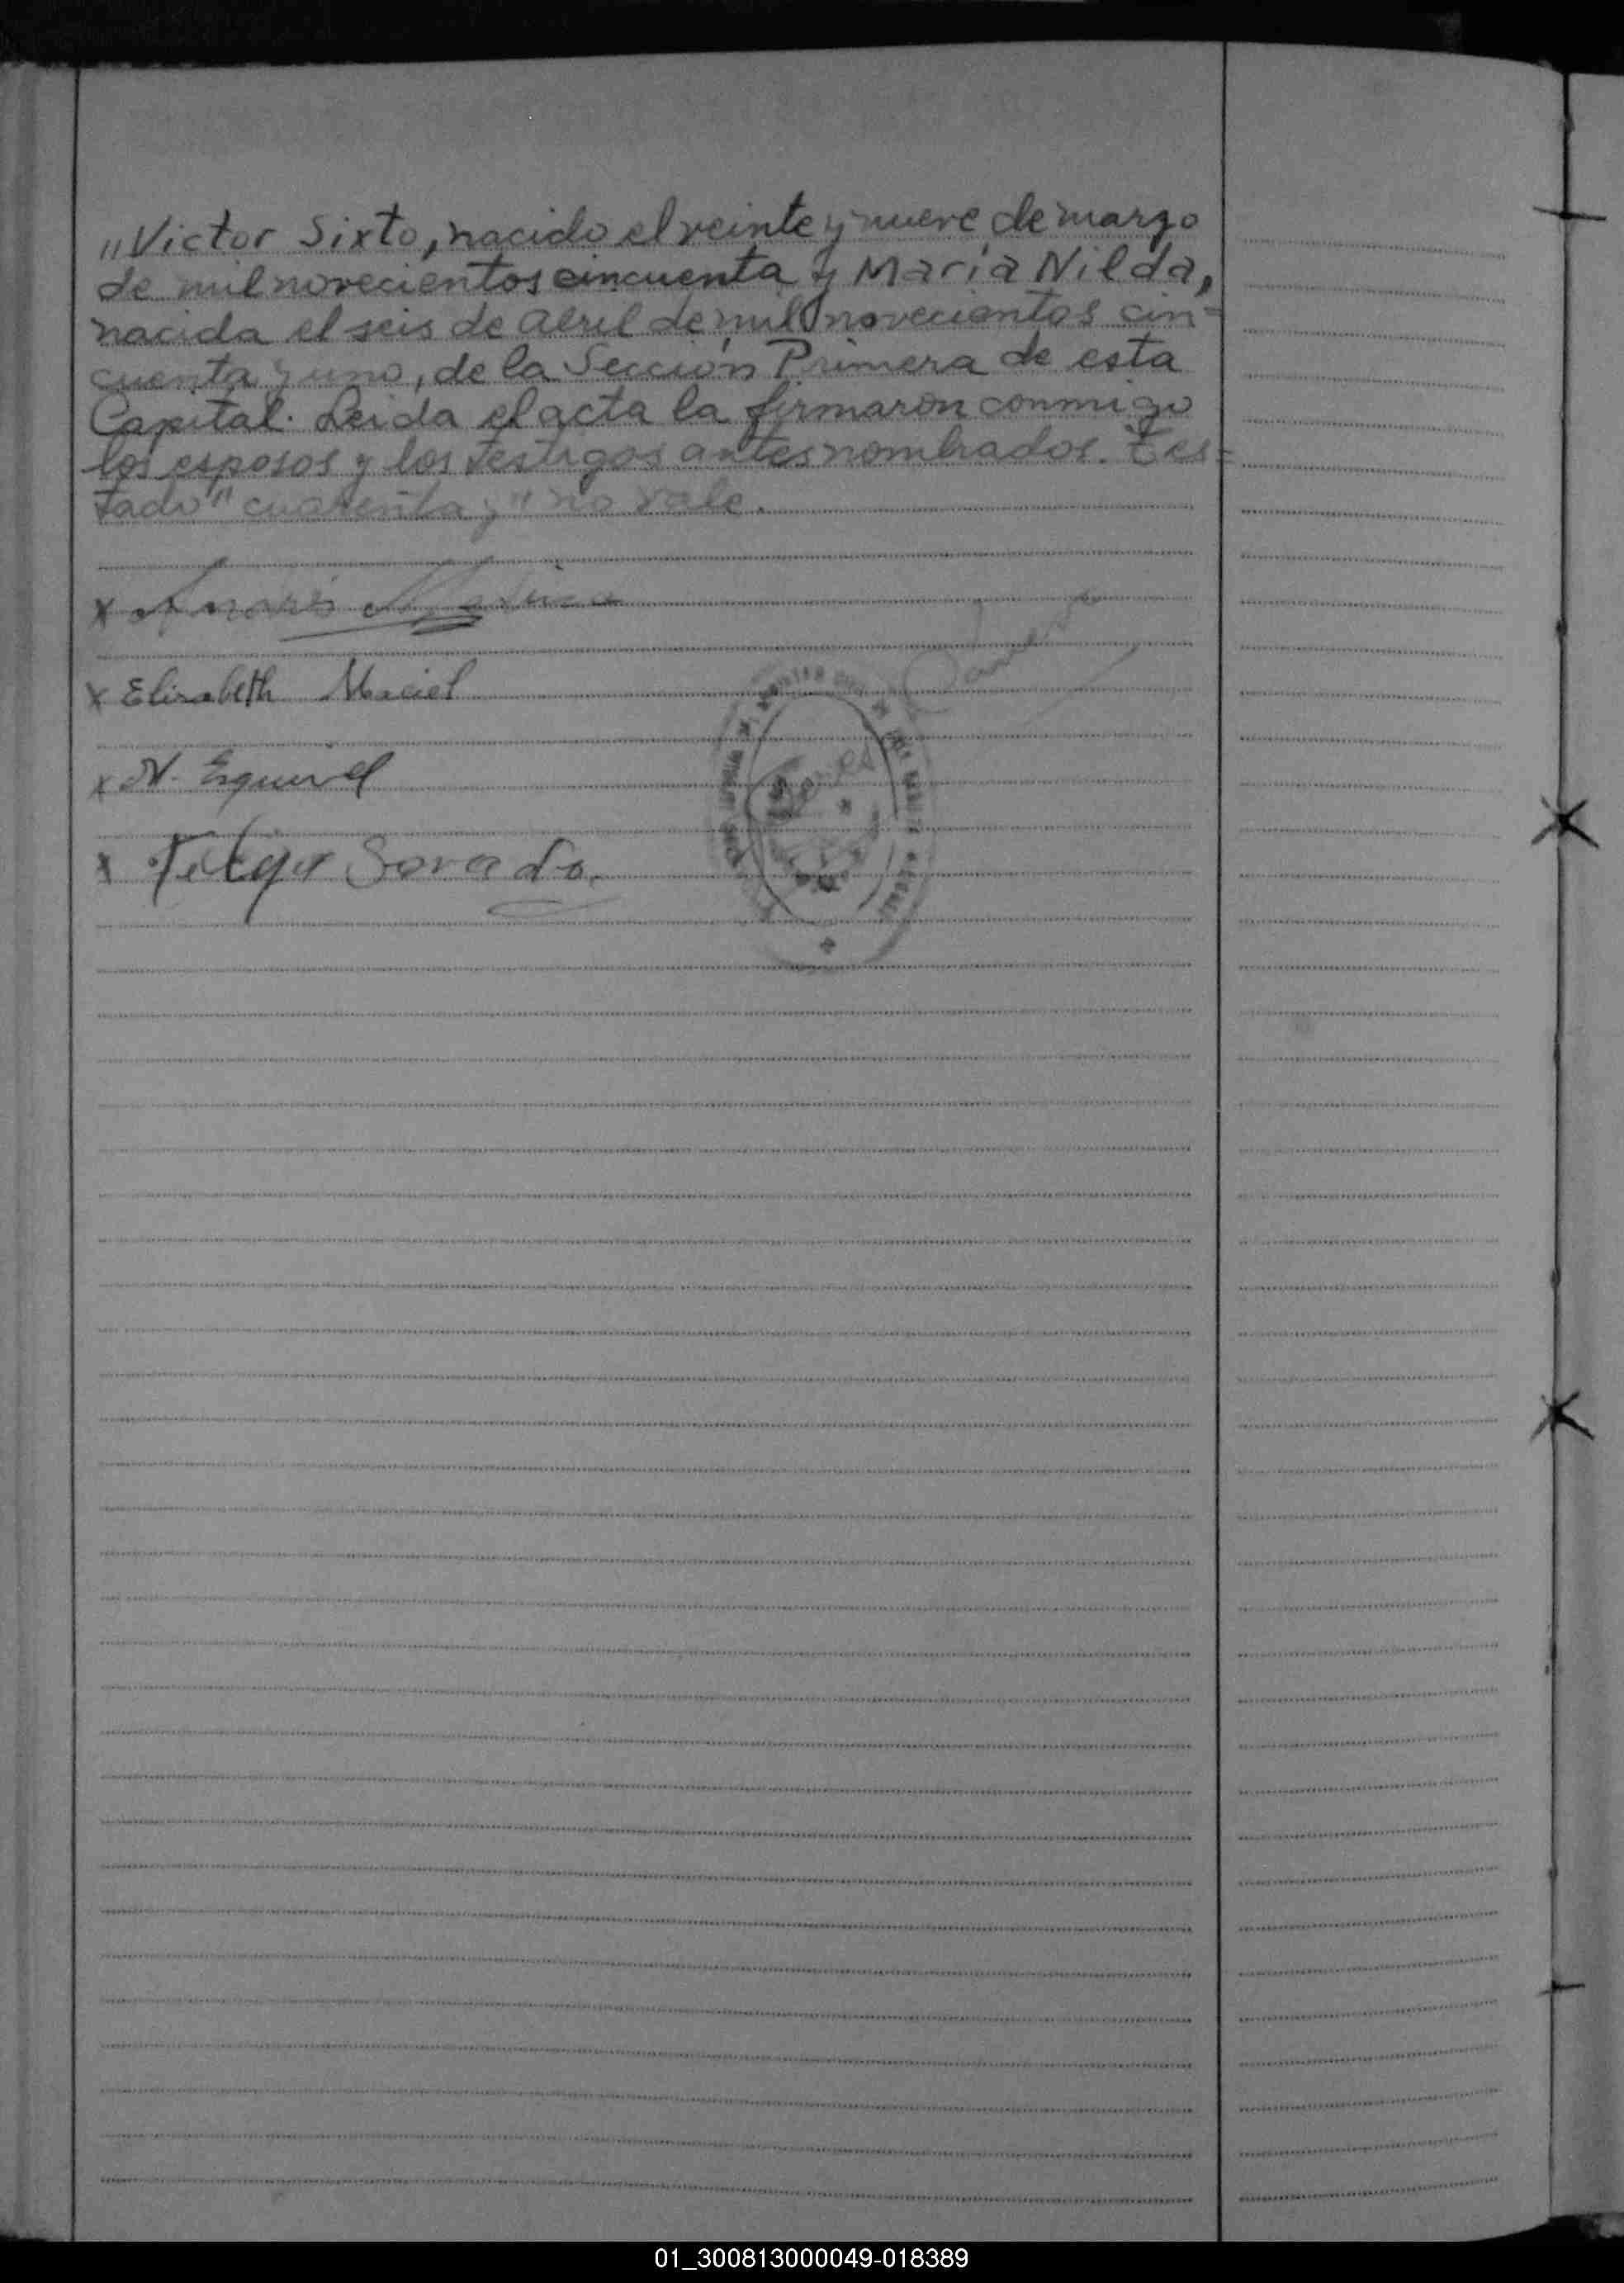 "Victor Sixto, nacido el veinte y nueve de marzo
de mil novecientos cincuenta y María Nilda,
nacida el seis de Abril de mil novecientos cin=
cuenta y uno, de la Sección Primera de esta
Capital. Leida el acta la firmaron conmigo
los esposos y los testigos antes nombrados. Tes=
tado "cuarenta y" no vale.
x
x Elizabeth Maciel
x N. Esquivel
x
01_300813000049-018389